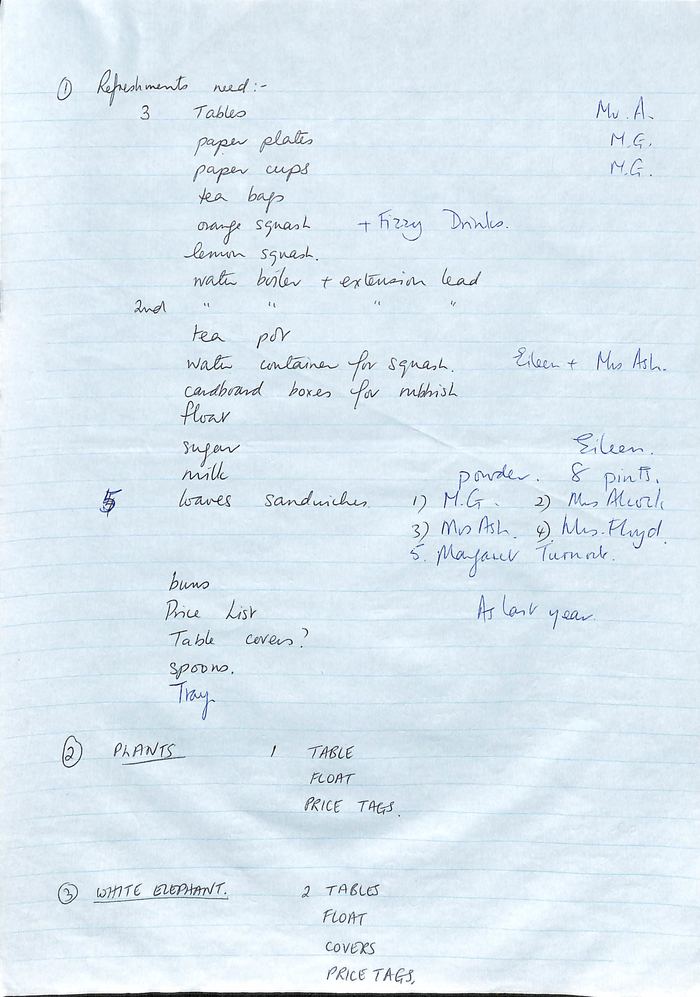 ① Refreshments need:-
3 Tables Mr. A.
paper plates M.G.
paper cups M.G.
tea bags
orange squash + Fizzy Drinks.
lemon squash.
water boiler + extension lead
2nd " " " "
tea pot
water container for squash. Eileen + Mrs Ash.
cardboard boxes for rubbish
float
sugar Eileen.
milk powder. 8 pints.
5 loaves sandwiches 1) M.G. 2) Mrs Alcock
3) Mrs Ash. 4) Mrs. Floyd.
5. Margaret Turnock.
buns
Price List As last year.
Table covers?
spoons.
Tray
② PLANTS 1 TABLE
FLOAT
PRICE TAGS.
③ WHITE ELEPHANT. 2 TABLES
FLOAT
COVERS
PRICE TAGS.